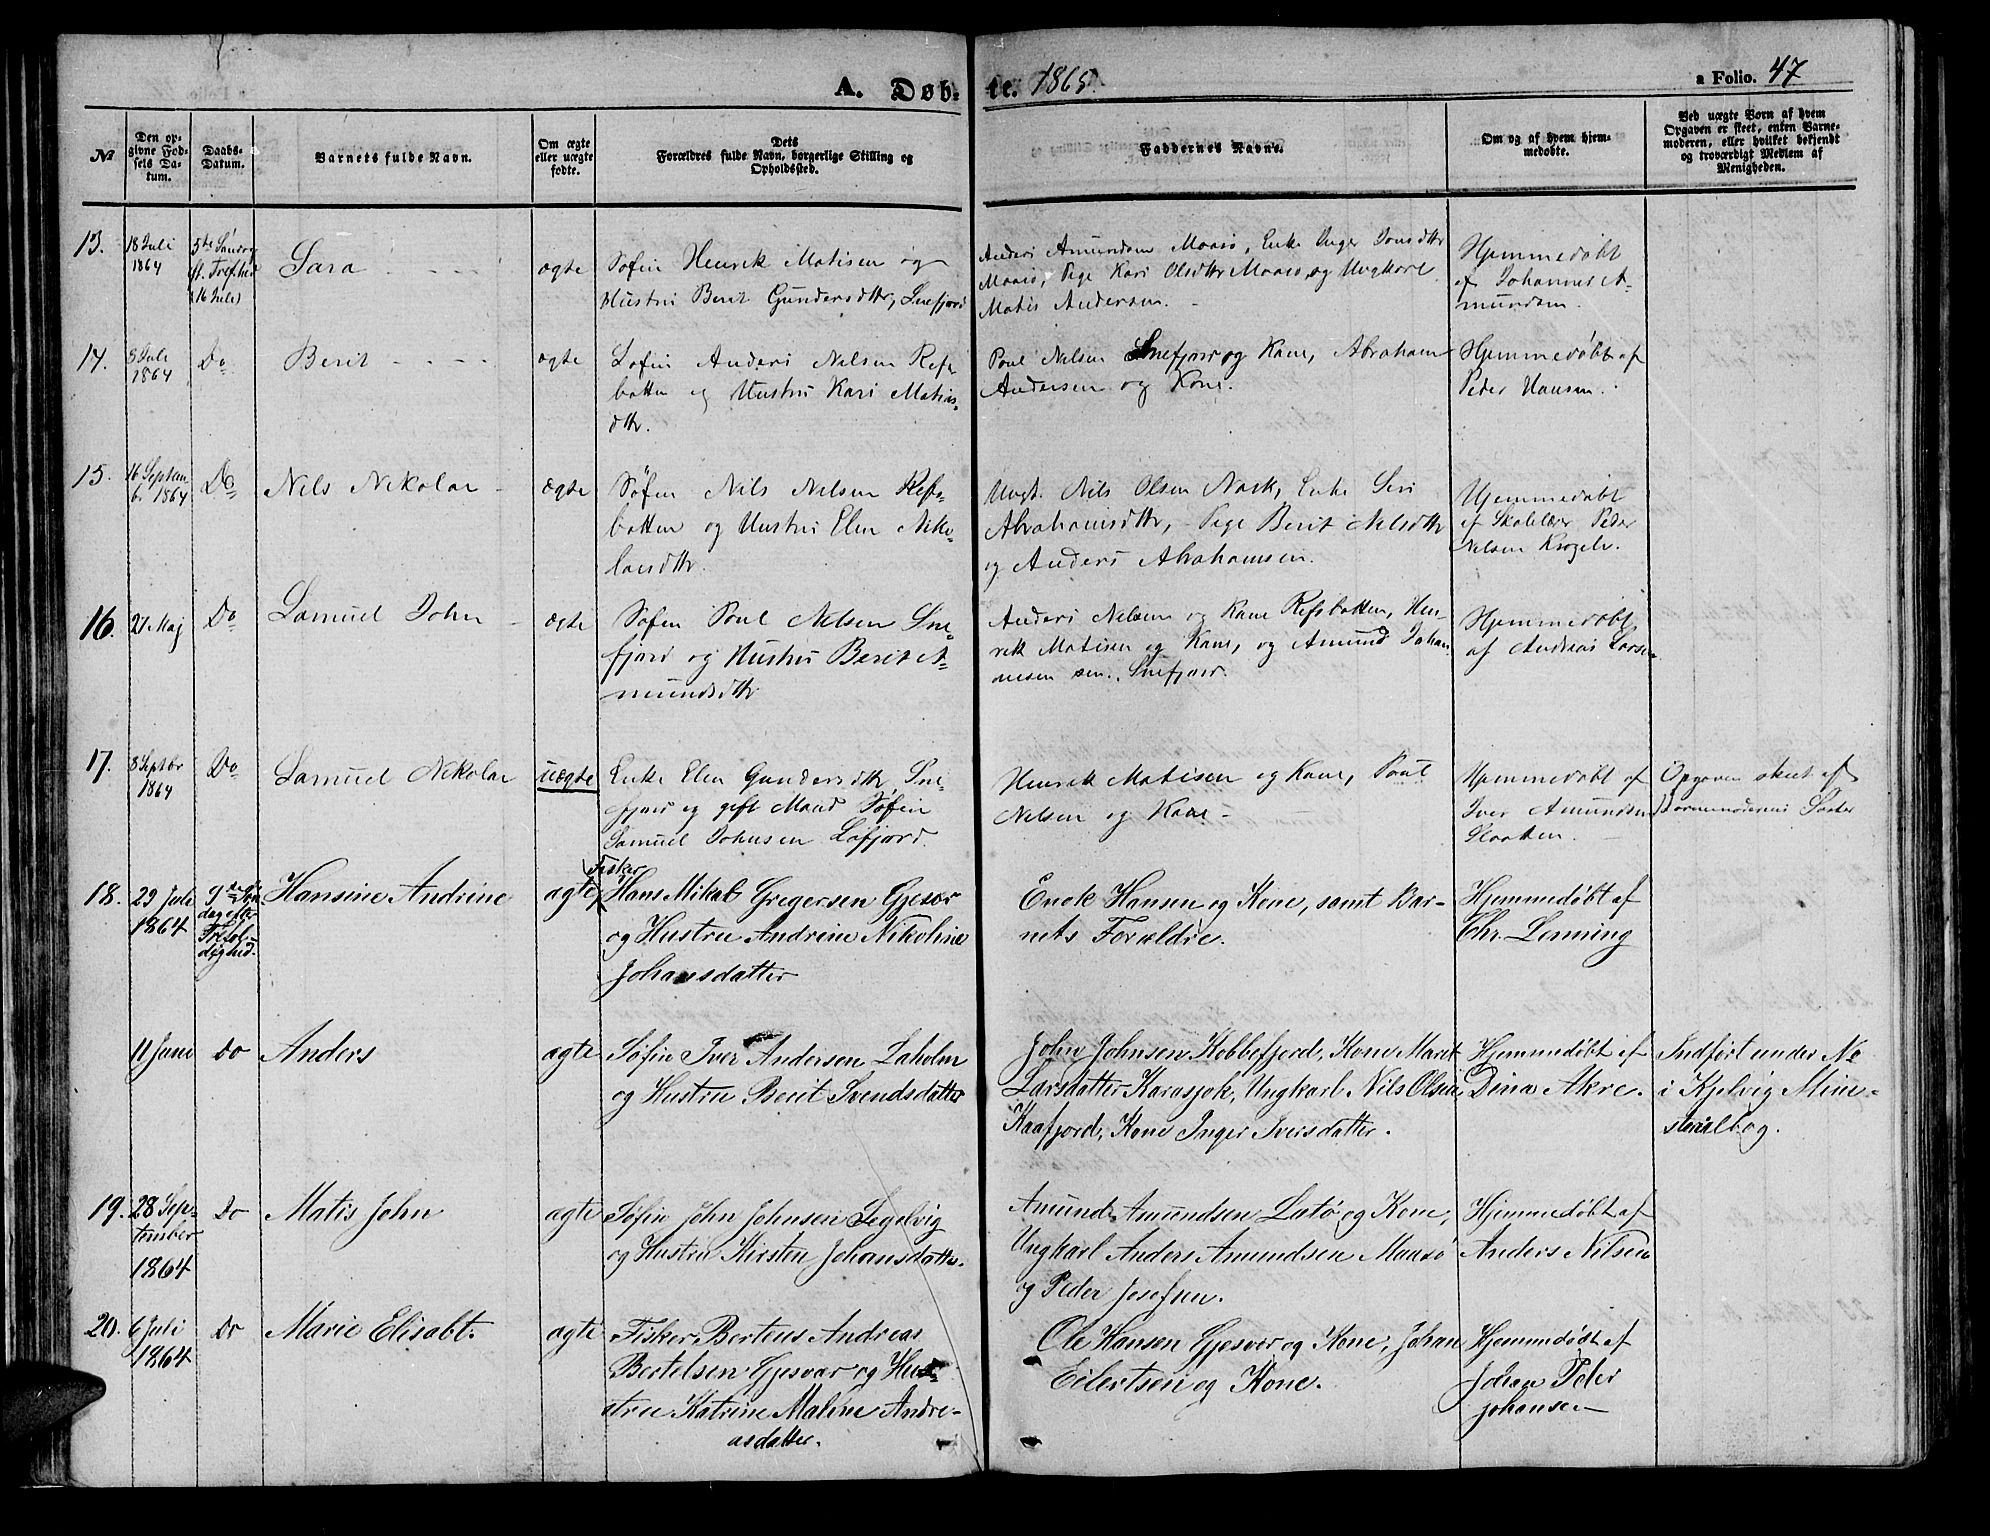 A. Døb- te. 1865. a Folio. 47
№
Den op-
givne Fød-
sels Da-
tum.
Daabs-
Datum.
Barnets fulde Navn.
Om ægte
eller uægte
fødte.
Dets
Forældres fulde Navn, borgerlige Stilling og
Opholdssted.
Faddernes Navne.
Om og af hvem hjem-
medøbte.
Ved uægte Børn af hvem
Opgaven er skeet, enten Barne-
moderen, eller hvilket bekjendt
og troværdigt Medlem af
Menigheden.
13.
18 Juli
1864
5te Søndag
ft. Trefhed
(16 Juli)
Sara
ægte
Søfin Henrik Matisen og
Hustrü Berit Gundersdttr, Snefjord
Anders Amundsen Maasø, Enke Inger Jonsdttr
Maasø, Pige Kari Olsdttr Maasø, og Ungkarl
Matis Andersen.
Hjemmedøbt
af Johannes A-
mundsen.
14.
8 Juli
1864
Do
Berit
ægte
Søfin Anders Nilsen Refs
botten og Hustrü Kari Matis-
dttr.
Poul Nilsen Snefjord og Kone, Abraham
Andersen og Kone.
Hjemmedøbt af
Peder Hansen.
15.
16 Septem
b. 1864
Do
Nils Nikolai
ægte
Søfin Nils Nilsen Refs-
botten og Hustrü Elen Niko-
laisdttr.
Ungk. Nils Olsen Nark, Enke Siri
Abrahamsdttr, Pige Berit Nilsdttr
og Anders Abrahamsen.
Hjemmedøbt
af Skolelærer Peder
Nilsen Krogelv.
16.
27 Maj
Do
Samuel John
ægte
Søfin Poul Nilsen Sne-
fjord og Hustrü Berit A-
mundsdttr
Anders Nilsen og Kone Refsbotten, Hen-
rik Matisen og Kone, og Amund Johan
nesen sen., Snefjord.
Hjemmedøbt
af Andreas Larsen
17.
8 Septbr
1864
Do
Samuel Nikolai
uægte
Enke Elen Gundersdttr, Sne-
fjord og gift Mand Søfin
Samuel Johnsen Lafjord.
Henrik Matisen og Kone, Poul
Nilsen og Kone
Hjemmedøbt af
Iver Amundsen
Slaatten.
Opgaven skeet af
Barnemoderens Søster
18.
29 Juli
1864
9de Søn
dag efter
Trefol-
dighed.
Hansine Andrine
ægte
Fisker
Hans Mikal Gregersen Gjesvær
og Hustru Andrine Nikoline
Johansdatter
Enok Hansen og Kone, samt Bar-
nets Forældre.
Hjemmedøbt af
Chr. Lenning
11 Juni
Do
Anders
ægte
Søfin Iver Andersen Laholm
og Hustru Berit Svendsdatter
John Johnsen Kobbefjord, Kone Maret
Larsdatter Karasjok, Ungkarl Nils Olsen
Kaafjord, Kone Inger Iversdatter.
Hjemmedøbt af
Dina Akre.
Indført under No
i Kjelvig Mini-
sterialbog.
19.
28 Sep-
tember
1864
Do
Matis John
ægte
Søfin John Johnsen Segelvig
og Hustru Kirsten Johansdatter.
Amund Amundsen Latø og Kone,
Ungkarl Anders Amundsen Maasø
og Peder Josefsen.
Hjemmedøbt af
Anders Nilsen
20.
6 Juli
1864
Do
Marie Elisabt.
ægte
Fisker Berteus Andreas
Bertelsen Gjesvær og Hus-
tru Katrine Maline Andre-
asdatter.
Ole Hansen Gjesvær og Kone, Johan
Eilertsen og Kone.
Hjemmedøbt af
Johan Peder
Johansen